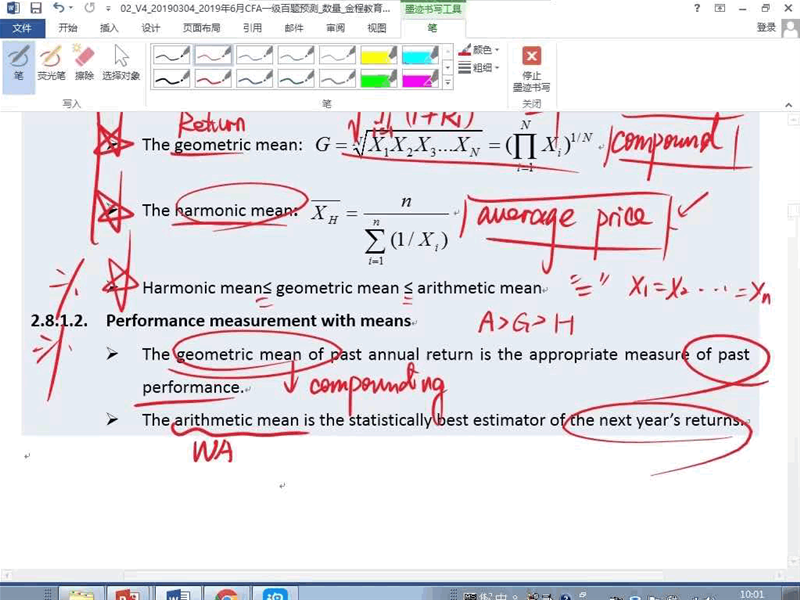 02_V4_20190304_2019年6月CFA一级百题预测_数量_金程教育... 墨迹书写工具
文件 开始 插入 设计 页面布局 引用 邮件 审阅 视图 笔 登录
笔 荧光笔 擦除 选择对象 颜色 粗细 停止墨迹书写
写入 笔 关闭
Return (1+Ri)
The geometric mean: G = \sqrt[N]{X_1X_2X_3...X_N} = (\prod_{i=1}^{N} X_i)^{1/N} compound
The harmonic mean: \overline{X_H} = \frac{n}{\sum_{i=1}^{n}(1/X_i)} average price
Harmonic mean≤ geometric mean ≤ arithmetic mean "=" X1=X2 ... =Xn
2.8.1.2. Performance measurement with means A>G>H
The geometric mean of past annual return is the appropriate measure of past
performance. compounding
The arithmetic mean is the statistically best estimator of the next year's returns.
WA
10:01